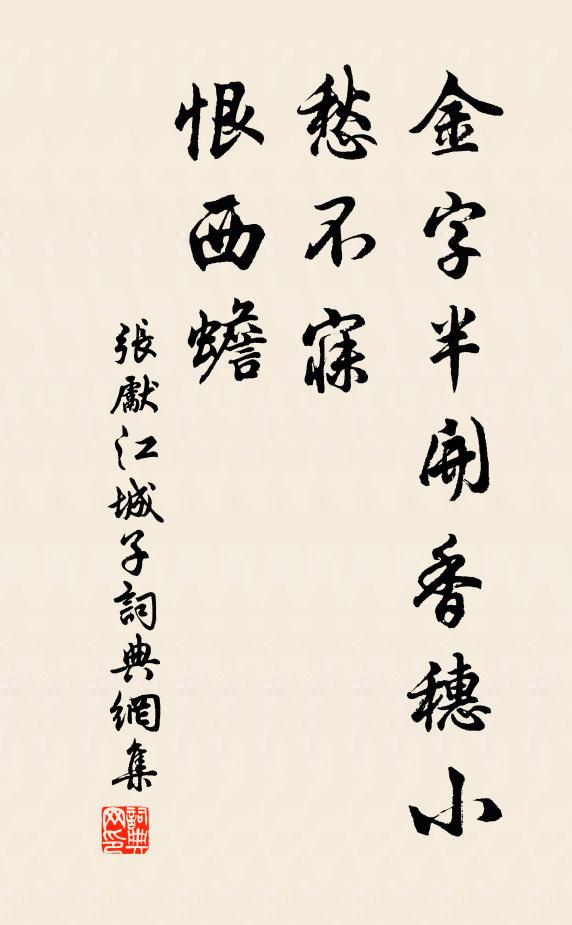 金字半開香穗小
愁不寐
恨西蟾
張獻江城子詞典網集
詞典网印